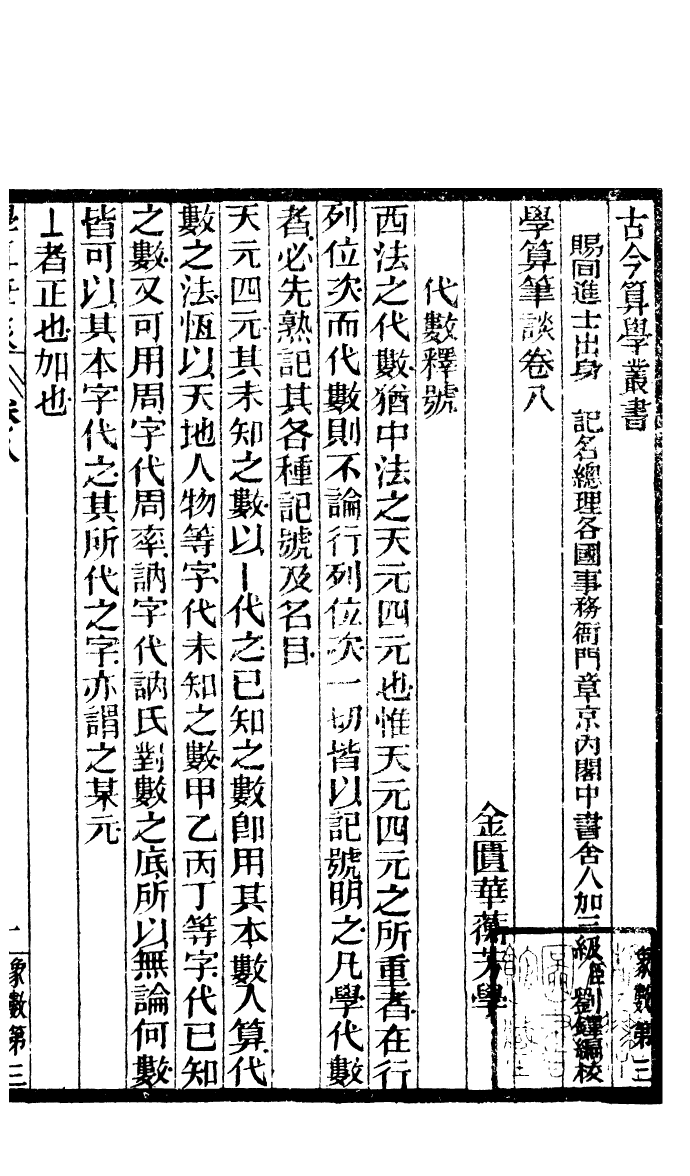 古今算學叢書 象數第三
賜同進士出身 記名總理各國事務衙門章京內閣中書舍人加三級 劉鐸編校
學算筆談卷八
金匱華蘅芳學
代數釋號
西法之代數猶中法之天元四元也惟天元四元之所重者在行
列位次而代數則不論行列位次一切皆以記號明之凡學代數
者必先熟記其各種記號及名目
天元四元其未知之數以〡代之已知之數卽用其本數入算代
數之法恆以天地人物等字代未知之數甲乙丙丁等字代已知
之數又可用周字代周率訥字代訥氏對數之底所以無論何數
皆可以其本字代之其所代之字亦謂之某元
⊥者正也加也
學算筆談 卷八 一 象數第三